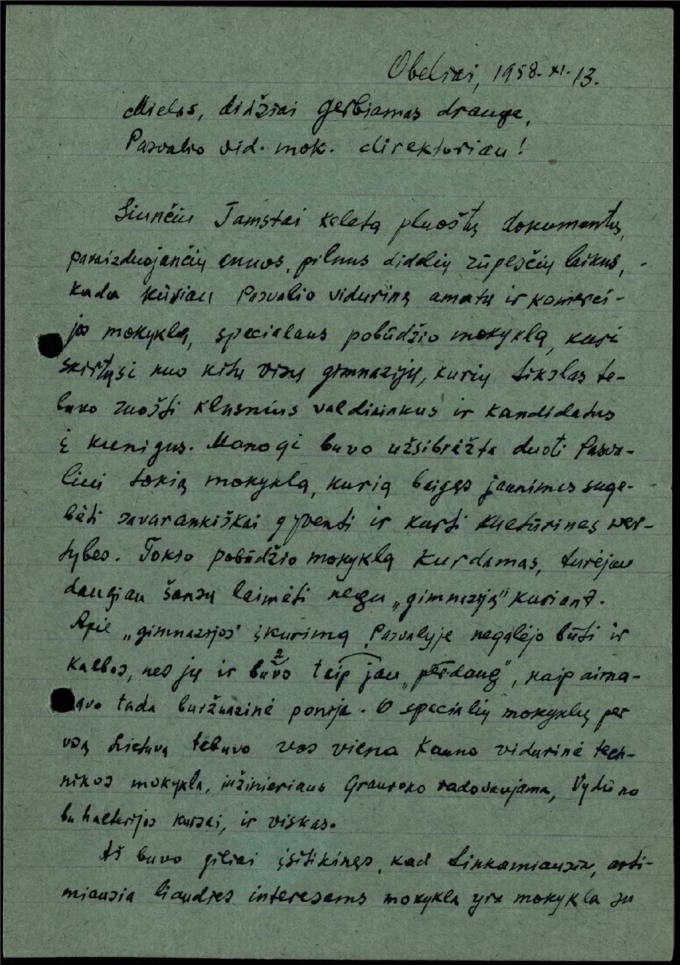 Obeliai, 1958.XI.13.
Mielas, didžiai gerbiamas drauge,
Pasvalio vid. mok. direktoriau!
Siunčiu Tamstai keletą pluoštų dokumentų,
pavaizduojančių anuos, pilnus didelių rūpesčių laikus,
kada kūriau Pasvalio vidurinę amatų ir komerci-
jos mokyklą, specialaus pobūdžio mokyklą, kuri
skirtųsi nuo kitų visų gimnazijų, kurių tikslas te-
buvo ruošti klusnius valdininkus ir kandidatus
į kunigus. Manogi buvo užsibrėžta duoti Pasva-
liui tokią mokyklą, kurią baigęs jaunimas suge-
bėtų savarankiškai gyventi ir kurti kultūrines ver-
tybes. Tokio pobūdžio mokyklą kurdamas, turėjau
daugiau šansų laimėti negu „gimnaziją" kuriant.
Apie „gimnazijos" įkūrimą Pasvalyje negalėjo būti ir
kalbos, nes jų ir buvo taip jau „perdaug", kaip aima-
navo tada buržuazinė ponija. O specialių mokyklų per
visą Lietuvą tebuvo vos viena Kauno vidurinė tech-
nikos mokykla, inžinieriaus Graurogko vadovaujama, Vydūno
buhalterijos kursai, ir viskas.
Aš buvo giliai įsitikinęs, kad tinkamiausia, arti-
miausia liaudies interesams mokykla yra mokykla su